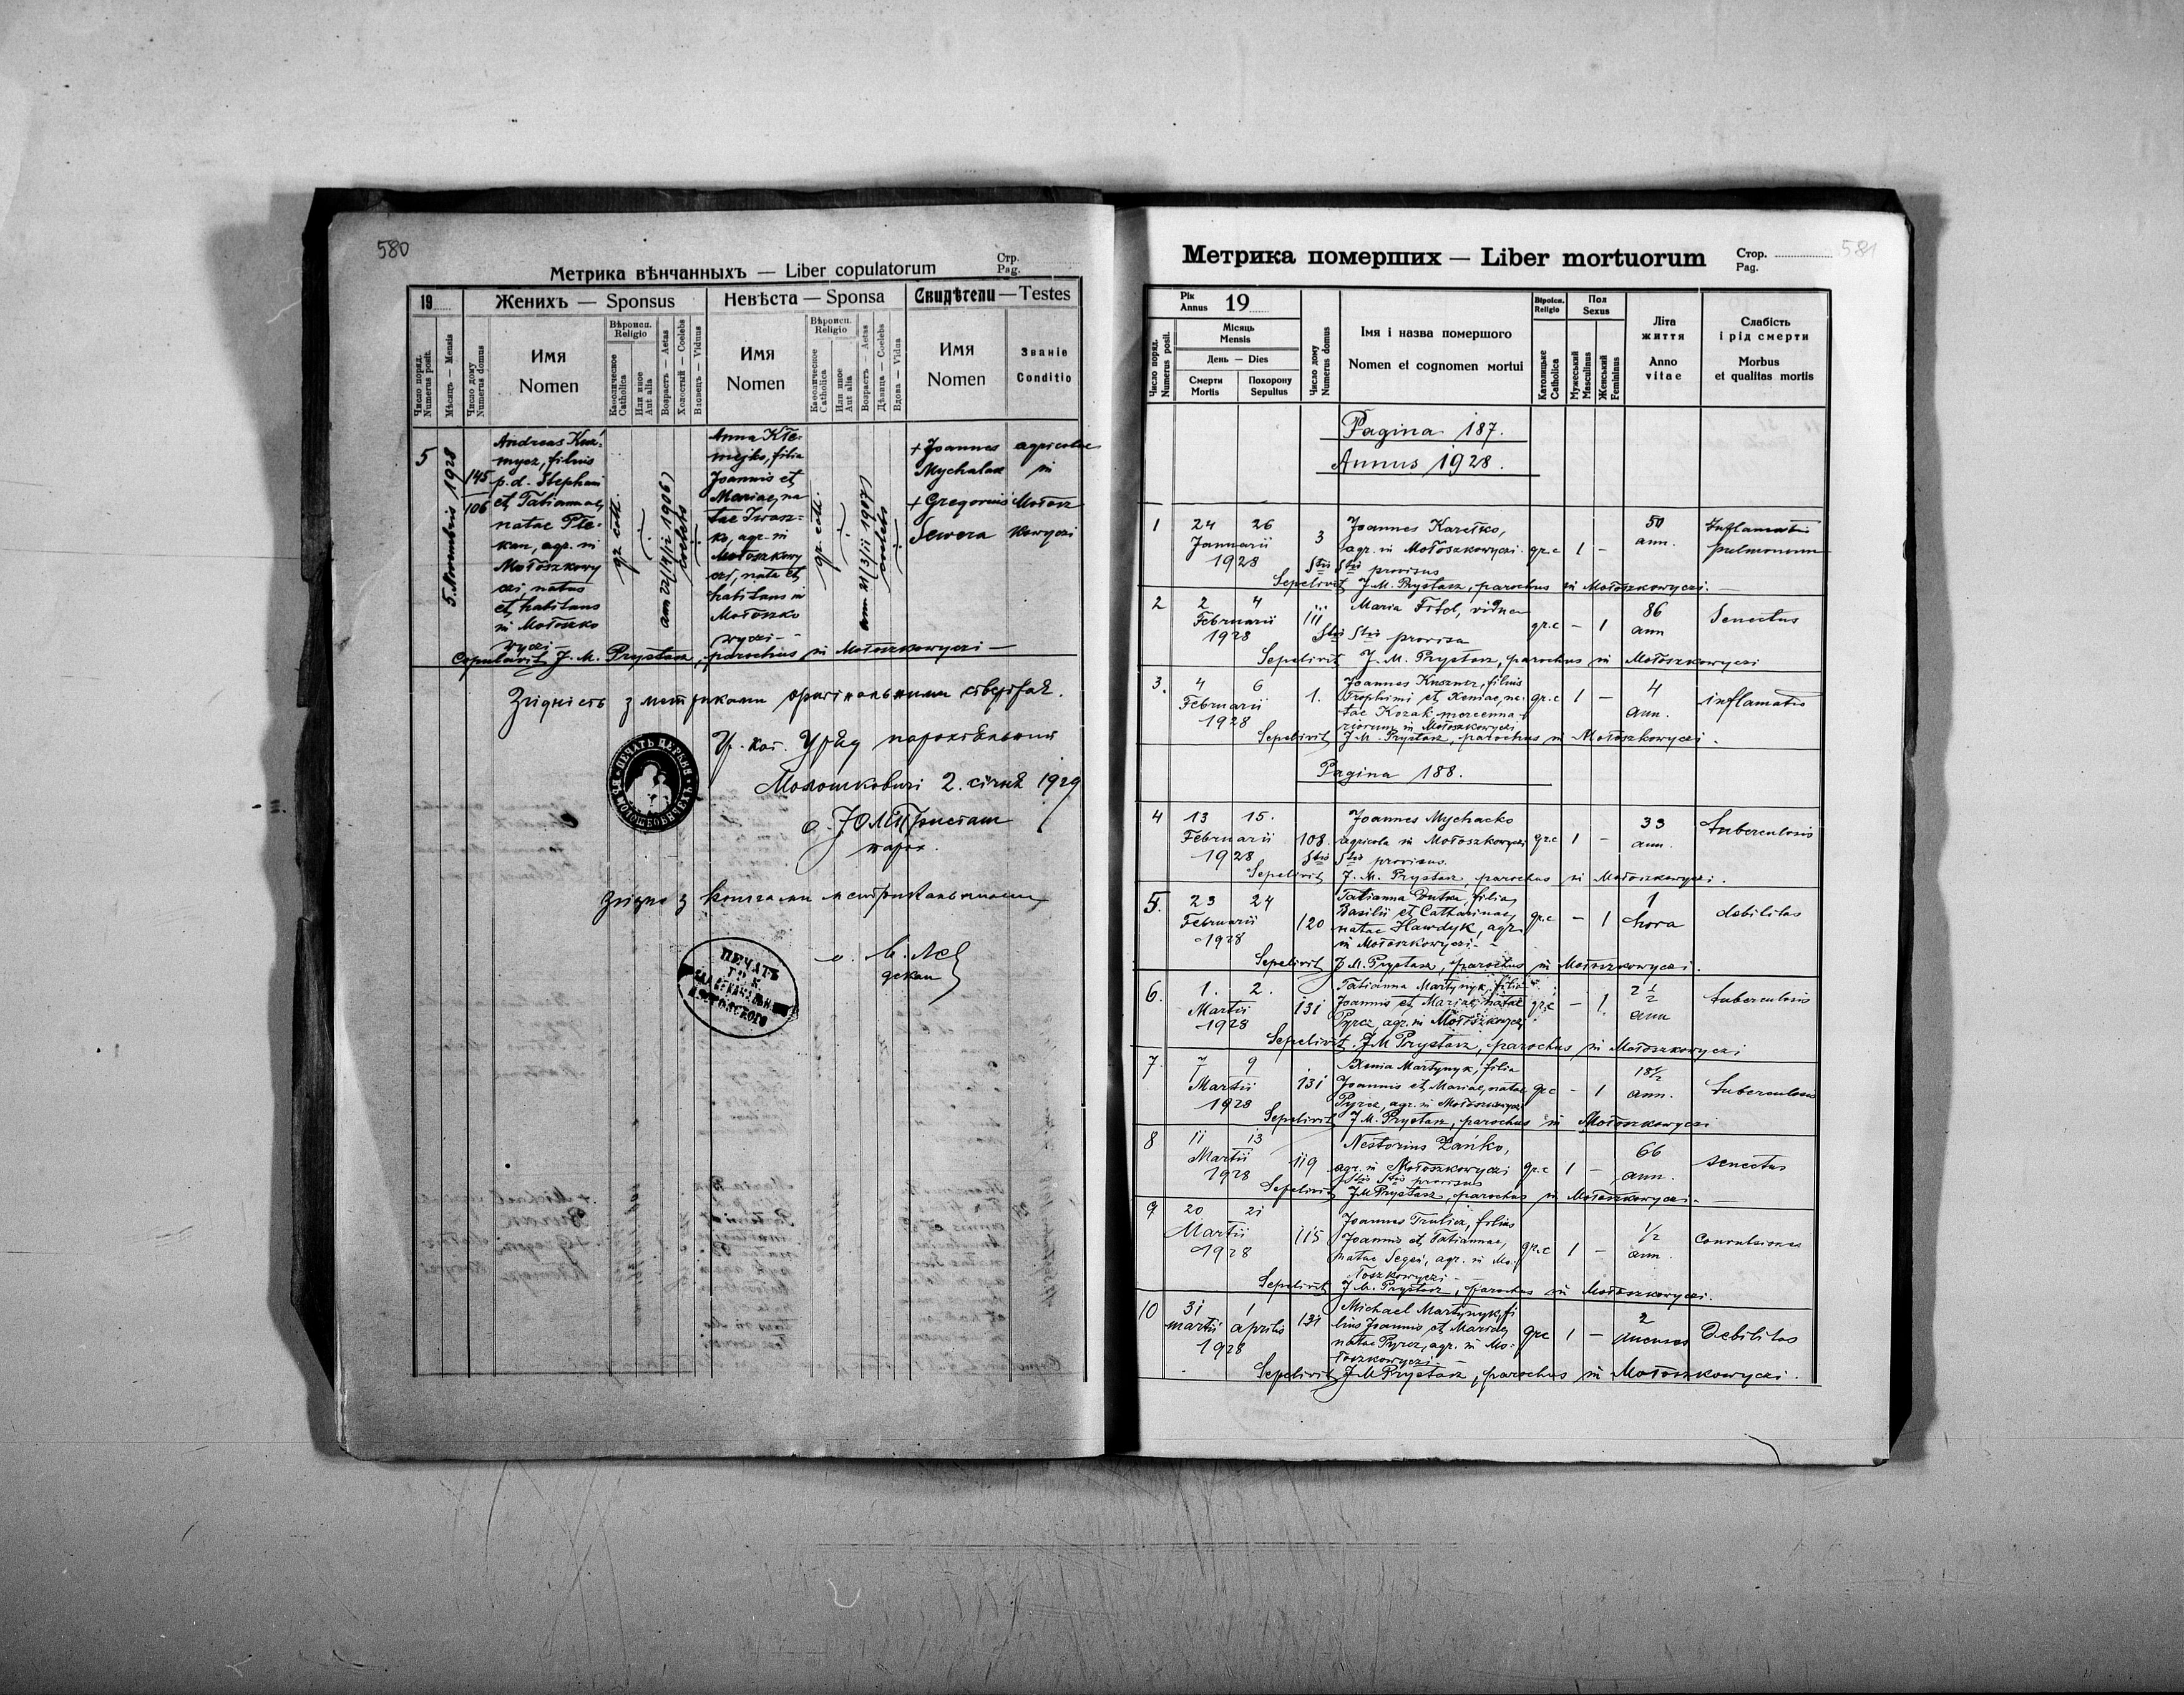 580
Метрика вѣнчанныхъ — Liber copulatorum
Стр.
Pag.
19
Женихъ — Sponsus
Невѣста — Sponsa
Свидѣтели — Testes
Число поряд.
Numerus posit.
Мѣсяць — Mensis
Число дому
Numerus domus
Имя
Nomen
Вѣроисп.
Religio
Каѳолическое
Catholica
Или иное
Aut alia
Возрасть — Aetas
Холостый — Coelebs
Вдовець — Viduus
Имя
Nomen
Вѣроисп.
Religio
Каѳолическое
Catholica
Или иное
Aut alia
Возрасть — Aetas
Дѣвица — Coelebs
Вдова — Vidua
Имя
Nomen
Званіе
Conditio
5
5. Novembris 1928
145
106
Andreas Kuź-
mycz, filius
p. d. Stephani
et Tatiannae,
natae Ple-
kan, agr. in
Mołoszkowy
czi, natus
et habitans
in Mołoszko
wyczi —
gr. cath.
ann 22 (4/12 1906)
coelebs
Anna Kle-
mejko, filia
Joannis et
Mariae, na
tae Iwasz-
ko, agr. in
Mołoszkowy
czi, nata et
habitans in
Mołoszko
wyczi —
gr. cath.
ann 21 (3/11 1907)
coelebs
+ Joannes
Mychalak
+ Gregorius
Sewera
agricolae
in
Mołosz
kowyczi
Copulavit J. M. Prystasz, parochus in Mołoszkowyczi —
Згідність з метриками оригінальними стверджає.
Гр. кат. Уряд парохіяльний
Молошковичі 2. січня 1929
парох.
ПЕЧАТЬ ЦЕРКВЕ
Згідно з книгами метрикальними
декан
ПЕЧАТЬ
ЯВОРОВСКОГО
Метрика померших — Liber mortuorum
Стор.
Pag.
581
Рік
Annus 19
Число поряд.
Numerus posit.
Місяць
Mensis
День — Dies
Смерти
Mortis
Похорону
Sepultus
Число дому
Numerus domus
Імя і назва померщого
Nomen et cognomen mortui
Віроісп.
Religio
Католицьке
Catholica
Пол
Sexus
Мужеський
Masculinus
Женський
Femininus
Літа
життя
Anno
vitae
Слабість
і рід смерти
Morbus
et qualitas mortis
Pagina 187.
Annus 1928.
1
24 26
Januarii
1928
3
Joannes Karełko,
agr. in Mołoszkowyczi
Stis Stis provisus
gr.c 1 —
50
ann.
Inflamatio
pulmonum
Sepelivit J. M. Prystasz, parochus in Mołoszkowyczi. —
2
2 4
Februarii
1928
111
Maria Fitol, vidua
Stis Stis provisa
gr.c — 1
86
ann
Senectus
Sepelivit J. M. Prystasz, parochus in Mołoszkowyczi
3.
4 6
Februarii
1928
1.
Joannes Kusznir, filius
Trophimi et Xeniae, na-
tae Kozak mercenna-
riorum in Mołoszkowyczi
gr.c 1 —
4
ann.
inflamatio
Sepelivit J. M. Prystasz, parochus in Mołoszkowyczi.
Pagina 188.
4
13 15.
Februarii
1928
108.
Joannes Mychacko
agricola in Mołoszkowyczi
Stis Stis provisus.
gr.c 1 —
33
ann.
tuberculosis
Sepelivit J. M. Prystasz, parochus in Mołoszkowyczi.
5.
23 24
Februarii
1928
120
Tatianna Dutka, filia
Basilii et Catharinae,
natae Hawdyk, agr.
in Mołoszkowyczi —
gr.c — 1
1
hora
debilitas
Sepelivit J. M. Prystasz, parochus in Mołoszkowyczi.
6.
1. 2.
Martii
1928
131
Tatianna Martynyk, filia
Joannis et Mariae, natae
Pyrcz, agr. in Mołoszkowyczi
gr.c — 1
2 1/2
ann
tuberculosis
Sepelivit J M Prystasz, parochus in Mołoszkowyczi
7.
7 9
Martii
1928
131
Xenia Martynyk, filia
Joannis et Mariae, natae
Pyrcz, agr. in Mołoszkowyczi
gr.c — 1
18 1/2
ann.
tuberculosis
Sepelivit J. M. Prystasz, parochus in Mołoszkowyczi
8
11 13
Martii
1928
119
Nestorius Zańko,
agr. in Mołoszkowyczi
Stis Stis provisus
gr.c 1 —
66
ann.
senectus
Sepelivit J M Prystasz, parochus in Mołoszkowyczi. —
9
20 21
Martii
1928
115
Joannes Trulicz, filius
Joannis et Tatiannae,
natae Segeś, agr. in Mo-
łoszkowyczi —
gr.c 1 —
1/2
ann
convulsiones
Sepelivit J. M. Prystasz, parochus in Mołoszkowyczi.
10
31 1
martii aprilis
1928
131
Michael Martynyk, fi
lius Joannis et Mariae,
natae Pyrcz, agr. in Mo-
łoszkowyczi —
gr.c 1 —
2
menses
Debilitas
Sepelivit J M Prystasz, parochus in Mołoszkowyczi.